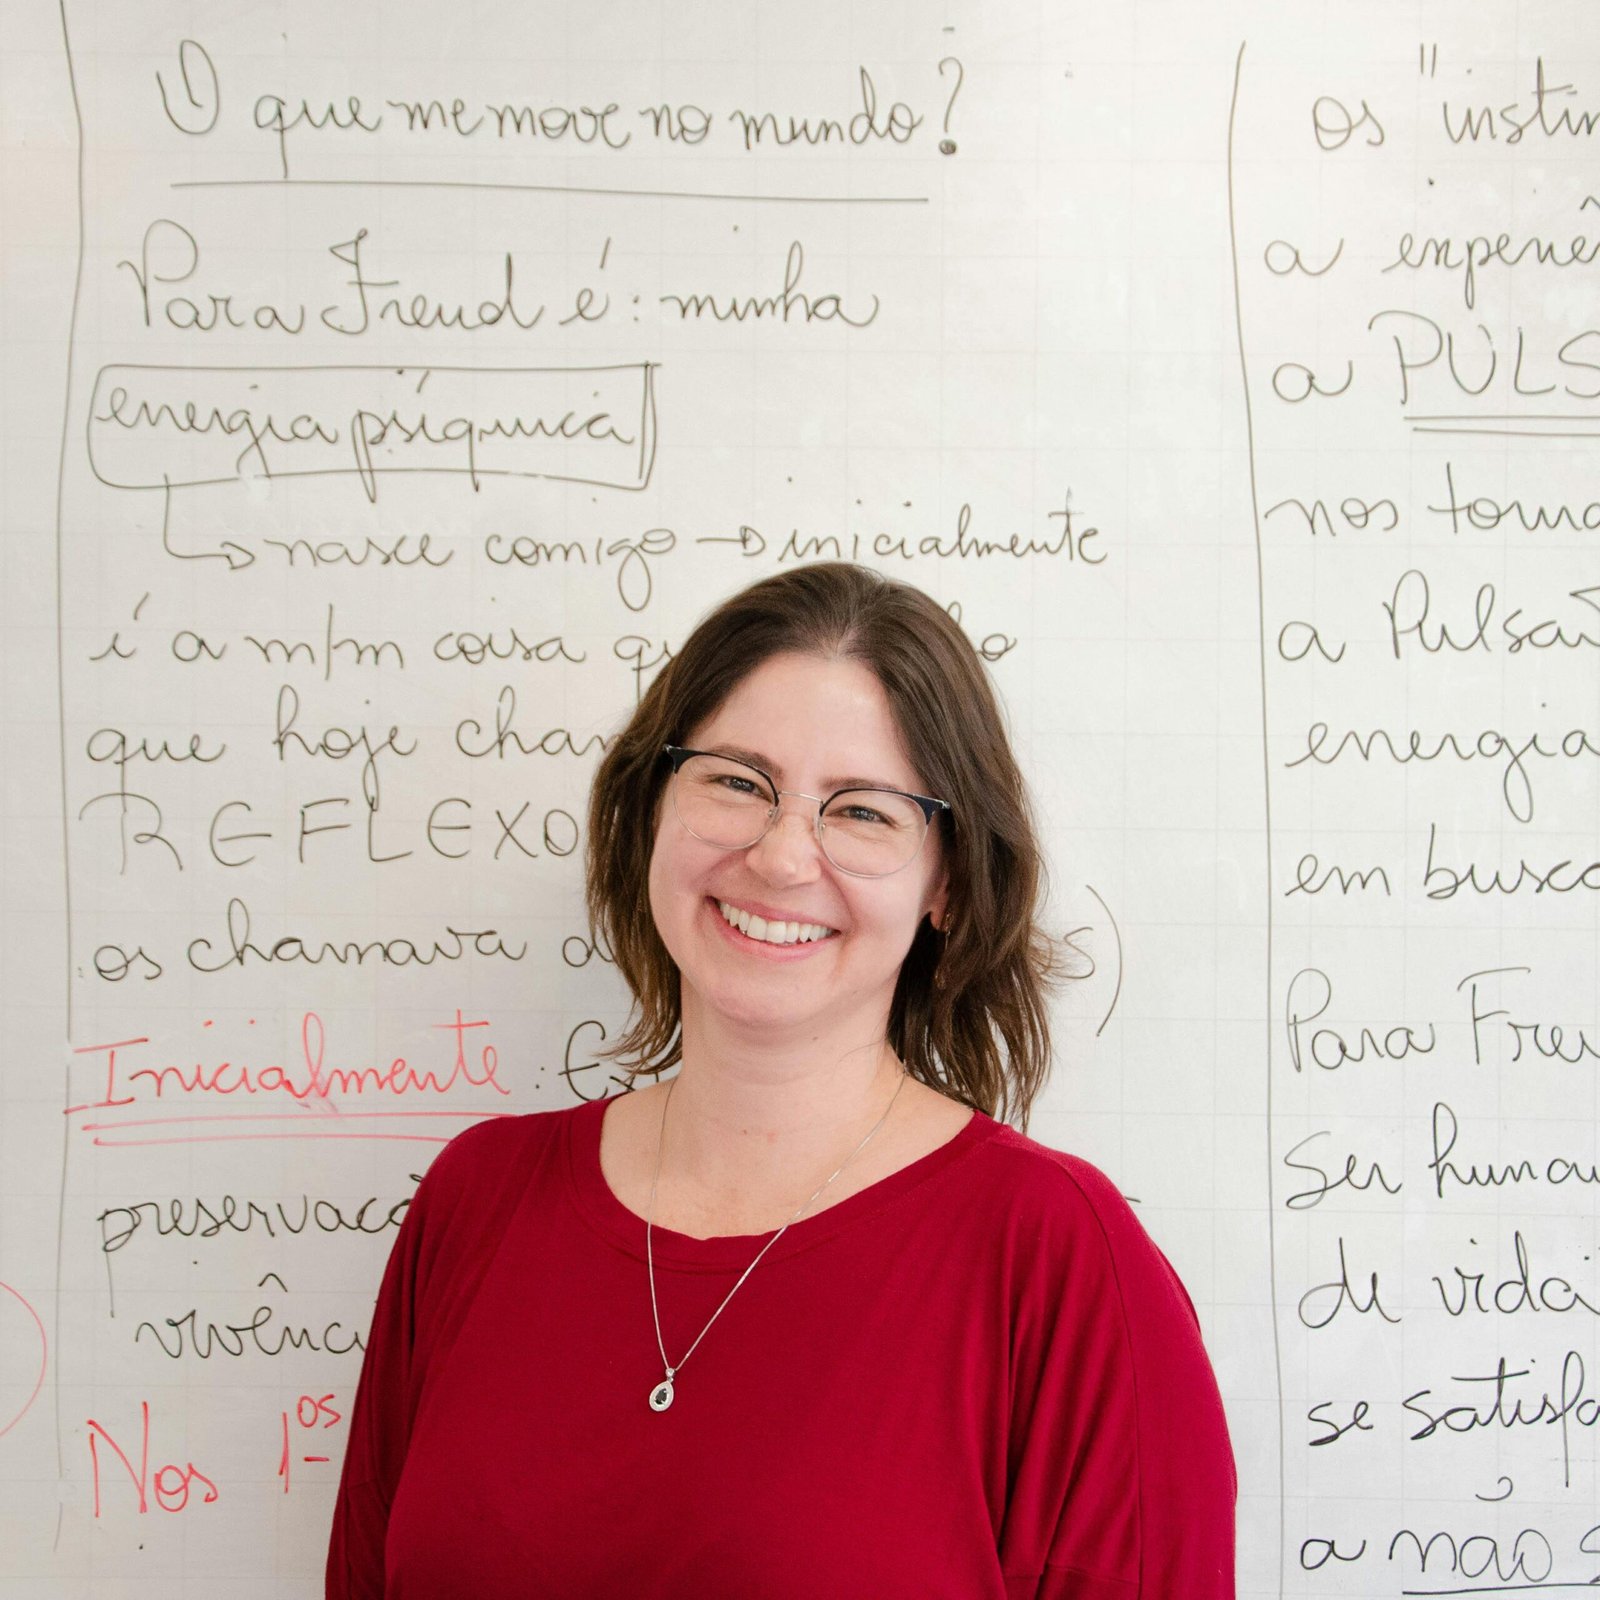 O que me move no mundo?
Para Freud é: minha
energia psíquica
nasce comigo → inicialmente
é a m/m coisa
que hoje
REFLEXO
os chamava
Inicialmente:
vivênci
Nos 1os
os "instin
a experiê
a PULS
nos torna
a Pulsã
energia
em busca
Para Freu
Ser huma
de vida
se satisfa
a não